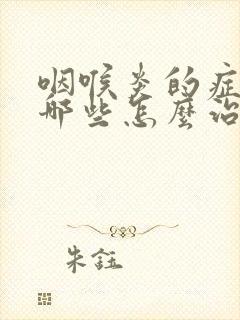 咽喉炎的症
哪些怎麼治
朱鈺